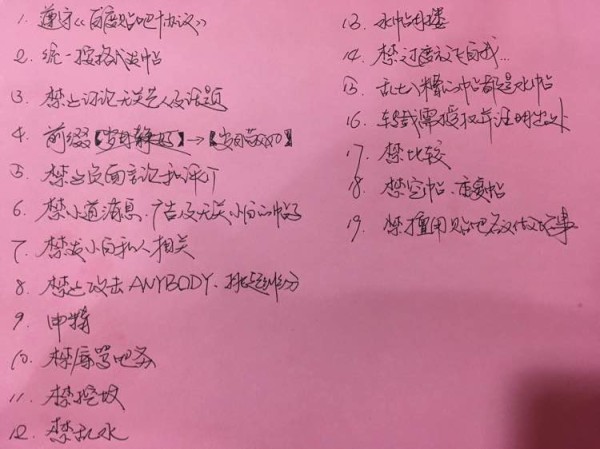 1. 遵守《百度贴吧协议》
2. 统一按格式发帖
3. 禁止讨论无关艺人及话题
4. 前缀【岁月静好】→【岁月敬如】
5. 禁止负面言论和评介
6. 禁小道消息、广告及无关小白的帖子
7. 禁发小白私人相关
8. 禁止攻击ANYBODY、挑起纷
9. 申精
10. 禁辱骂吧务
11. 禁挖坟
12. 禁乱水
13. 水帖用楼
14. 禁过度表达自我...
15. 乱七八糟的帖都是水帖
16. 转载需授权并注明出处
17. 禁比较
18. 禁空帖、重复帖
19. 禁擅用贴吧名义做事